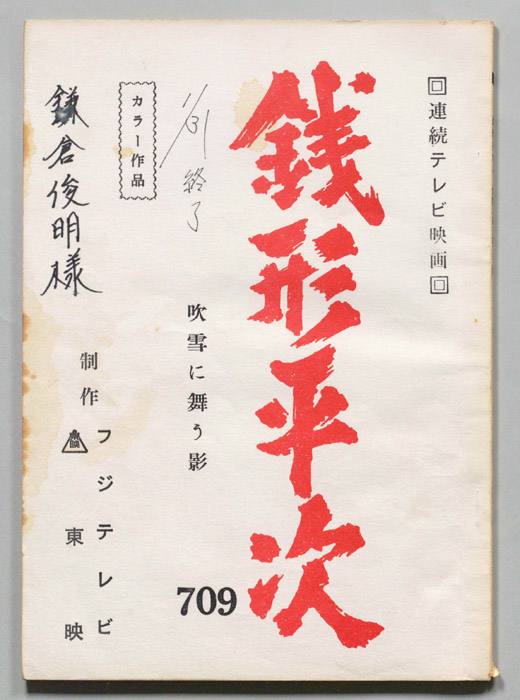 連続テレビ映画
銭形平次
709
吹雪に舞う影
1/31 終了
カラー作品
鎌倉俊明様
制作
フジテレビ
東映